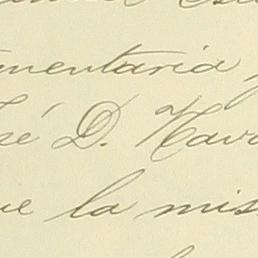 mentaria y
sé D. Nava
ue la mis